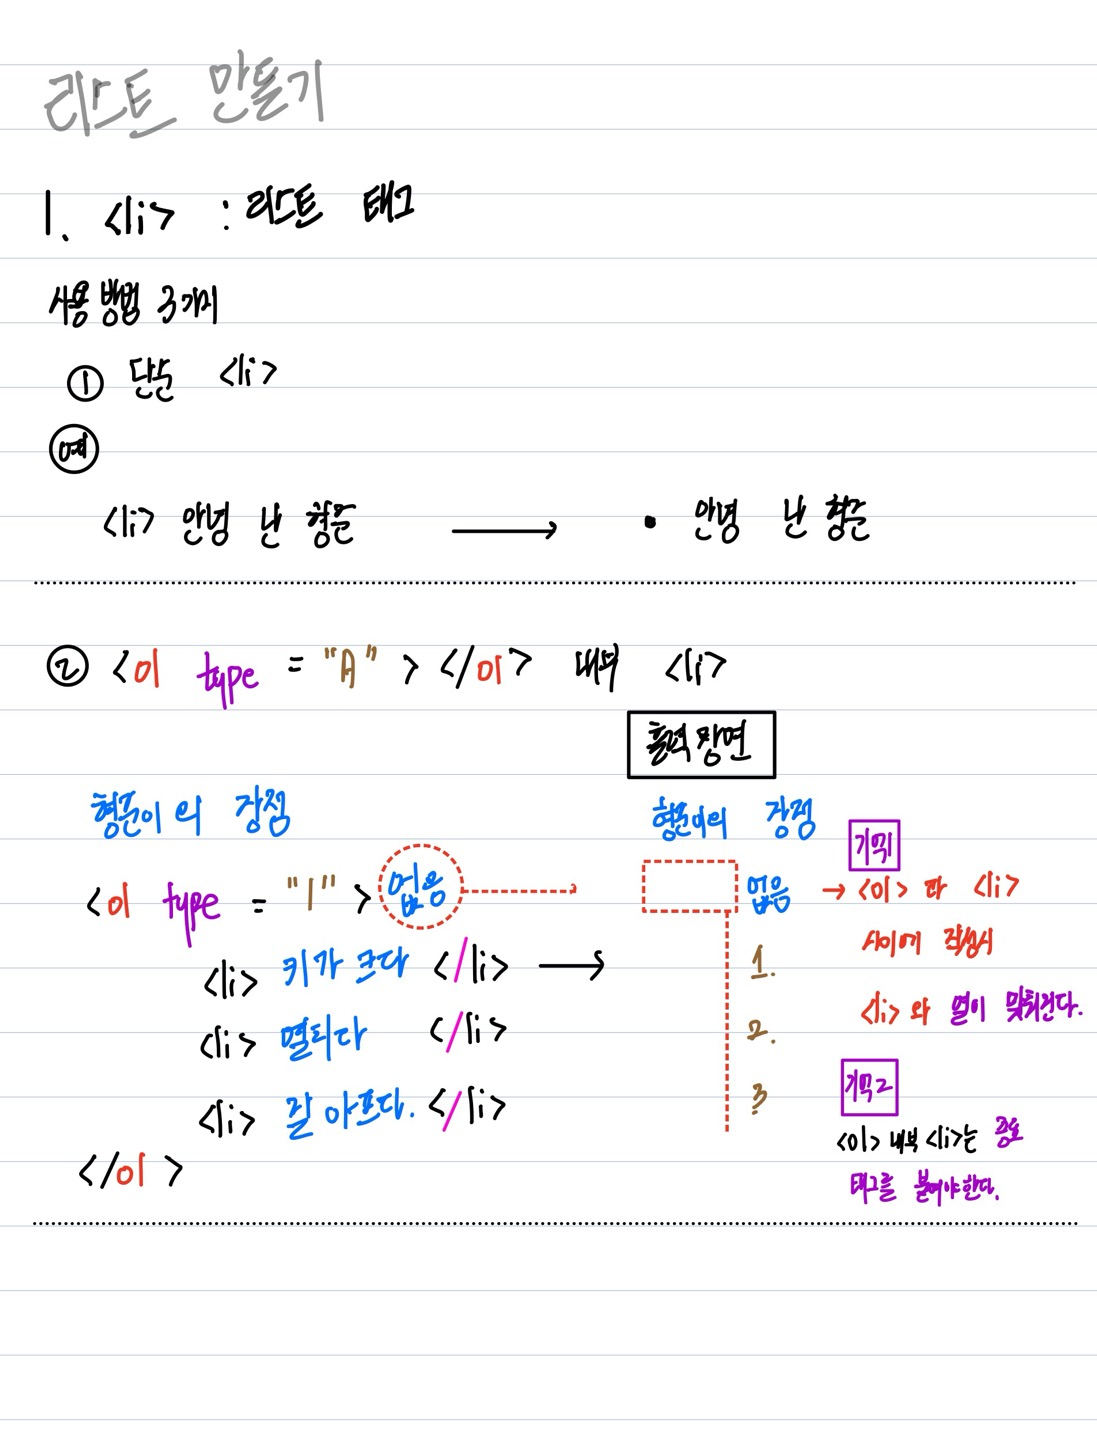 리스트 만들기
1. <li> : 리스트 태그
사용 방법 3가지
① 단순 <li>
예
<li> 안녕 난 형준 → • 안녕 난 형준
② <ol type = "A" > </ol> 내부 <li>
출력 장면
형준이의 장점
형준이의 장점
기억1
<ol type = "1" > 없음
없음 → <ol> 과 <li>
사이에 작성시
<li> 키가 크다 </li> →
1.
<li>와 열이 맞춰진다.
<li> 멸치다 </li>
2.
<li> 잘 아프다. </li>
3
기억2
<ol> 내부 <li>는 종료
태그를 붙여야한다.
</ol>